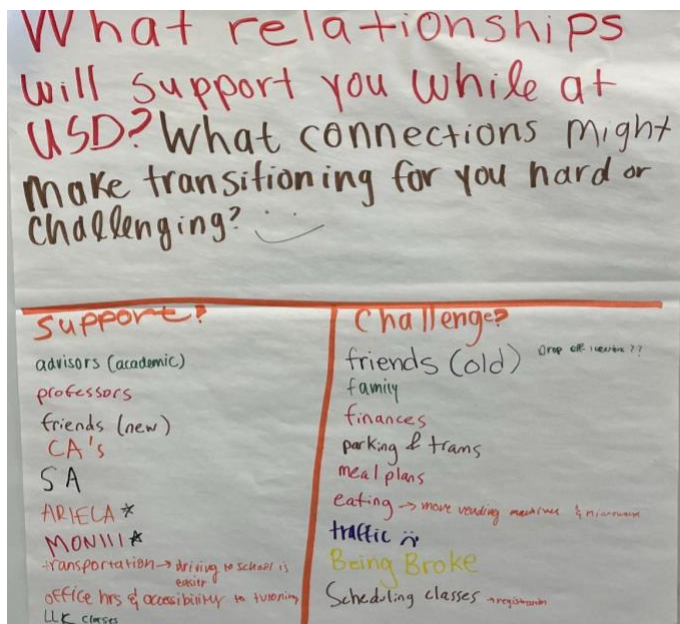 What relationships
will support you while at
USD? What connections might
make transitioning for you hard or
challenging?
Support?
advisors (academic)
professors
friends (new)
CA's
SA
ARIELA
MONIII
transportation → driving to school is
easier
office hrs & accessibility to tutoring
LLC classes
Challenge?
friends (old) Drop off ??
family
finances
parking & trans
meal plans
eating → more vending machines & microwave
traffic
Being Broke
Scheduling classes → registration